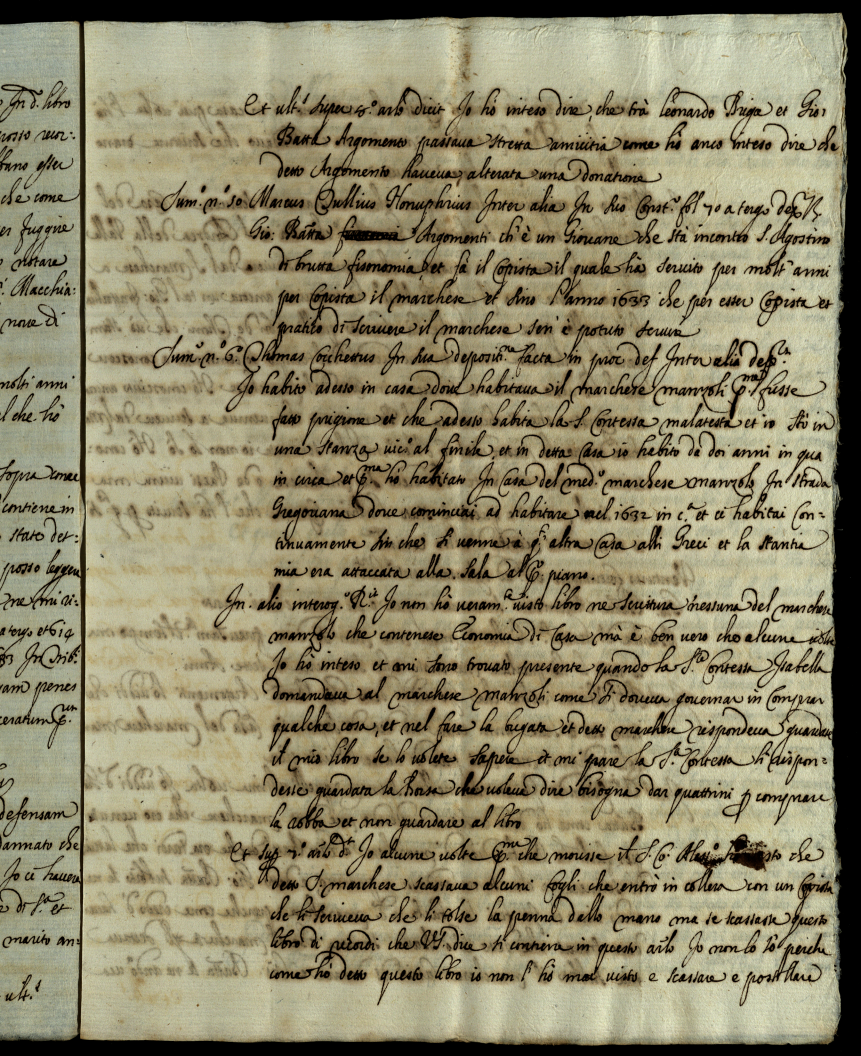 In d. libro
che come
er fuggire
notare
Macchia:
nove di
molti anni
el che hò
sopra come
contiene in
state det:
posso leggere
ne mi ri:
a tergo et 614
ceratum
defensam
dannato che
Io ci haveva
marito an:
ult.º
Et ult.º super 8.º arlō dicit Io hò inteso dire, che trà leonardo Briga et Gio:
Batta Argomento passava stretta amicitia come hò anco inteso dire che
detto Argomento haveva alterata una donatione
Sum.º n.º 10 Marcus Tullius Honuphrius Inter alia In suo Const.º fol 70 a tergo
Gio: Batta Argomenti ch'è un Giovane che stà incontro S. Agostino
di brutta fisonomia, et fà il Copista il quale hà servito per molti anni
per Copista il marchese et sino l'anno 1633 che per esser Copista et
pratico di scrivere il marchese sen' è potuto servire
Sum.º n.º 6.º Thomas Cocchettus In sua depositi.ne facta in proc. def. Inter alia
Io habito adesso in casa dove habitava il marchese manzoli p.ma fusse
fatto prigione et che adesso habita la S. Contessa malatesta et io stò in
una stanza vic.º al finile, et in detta Casa io habito da doi anni in qua
in circa et p.ma hò habitato In Casa del med.º marchese manzolo In strada
Gregoriana dove cominciai ad habitare nel 1632 in c.ª et ci habitai Con=
tinuamente sin che si venne à altra Casa alli Greci et la stantia
mia era attaccata alla sala al P.º piano.
In alio interog.º R.it Io non hò veram.te visto libro ne scrittura nessuna del marchese
manzolo che contenese Economia di Casa mà è ben vero che alcune volte
Io hò inteso et mi sono trovato presente quando la S.ra Contessa Isabella
domandava al marchese manzoli come si doveva governar in Comprar
qualche cosa, et nel fare la bugata et detto marchese rispondeva guardate
il mio libro se lo volete sapere et mi pare la S.ra Contessa li rispon=
desse guardate la Borsa che voleva dire bisogna dar quattrini p comprare
la robba et non guardare al libro
Et sup 7.º arlō d.t Io alcune volte p.ma che morisse il S. Co. Aless.º che
detto S. marchese scassava alcuni fogli che entrò in collera con un Copista
che li scriveva che li tolse la penna dallo mano ma se scassasse questo
libro di ricordi che VS. dice si conteneva in questo arlō Io non lo sò perche
come hò detto questo libro io non l' hò mai visto e scassare e postillare